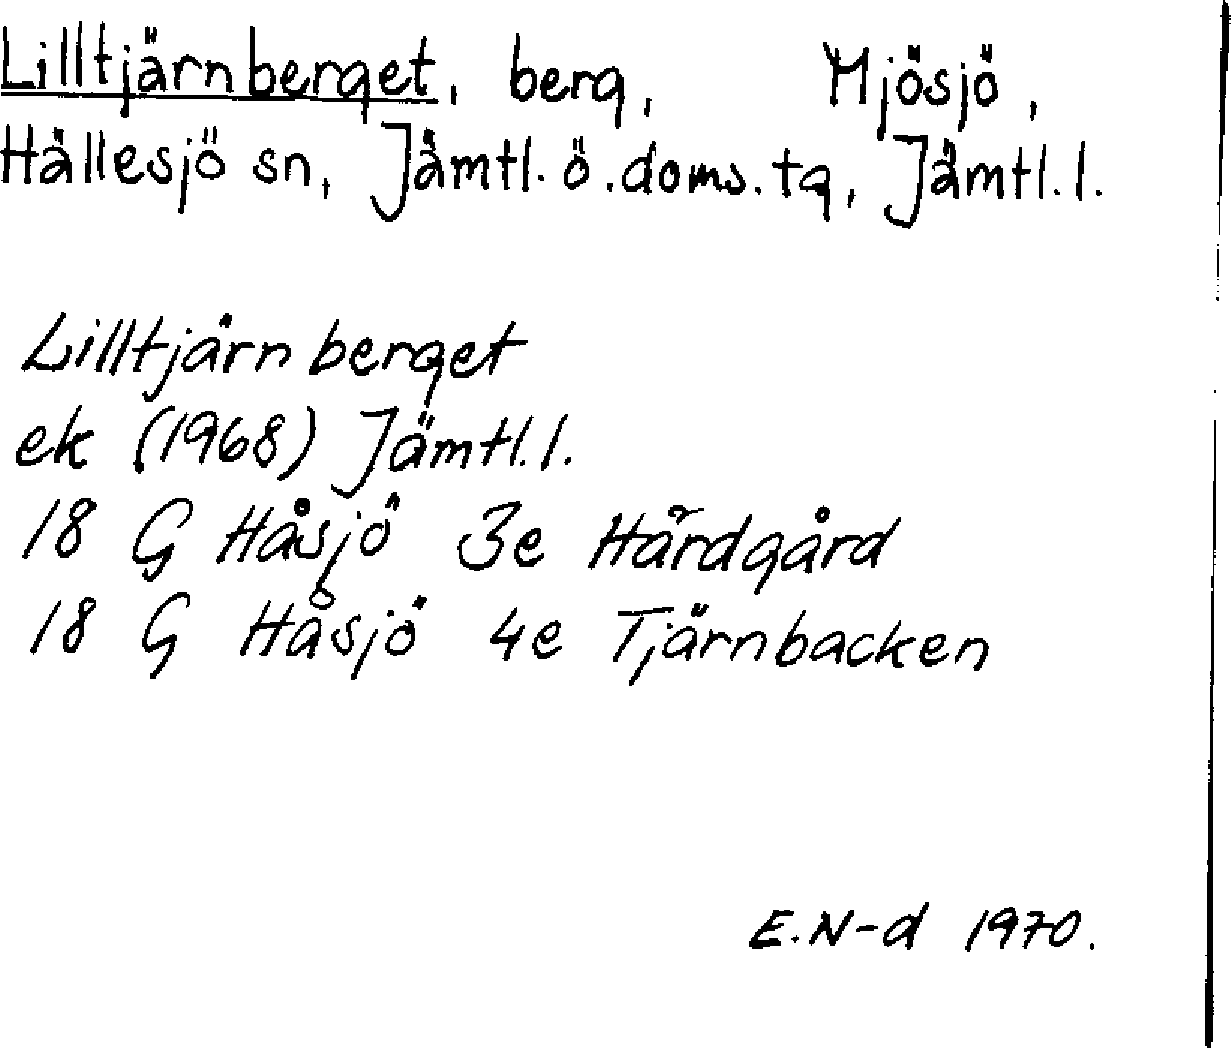 Lilltjärnberget, berg, Mjösjö,
Hällesjö sn, Jämtl. ö. doms. tg, Jämtl. l.
Lilltjärnberget
ek (1968) Jämtl. l.
18 G Håsjö 3e Hårdgård
18 G Håsjö 4e Tjärnbacken
E. N-d 1970.